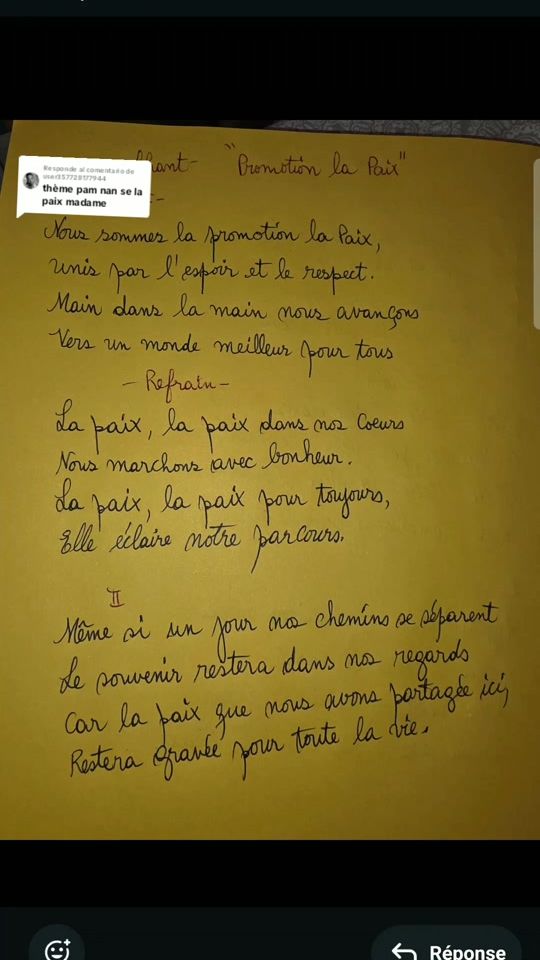 Chant- "Promotion la Paix"
Responde al comentario de
user1357728177944
thème pam nan se la
paix madame
Nous sommes la promotion la Paix,
Unis par l'espoir et le respect.
Main dans la main nous avançons
Vers un monde meilleur pour tous
- Refrain -
La paix, la paix dans nos Coeurs
Nous marchons avec bonheur.
La paix, la paix pour toujours,
Elle éclaire notre parcours.
II
Même si un jour nos chemins se séparent
Le souvenir restera dans nos regards
Car la paix que nous avons partagée ici,
Restera gravée pour toute la vie.
Réponse